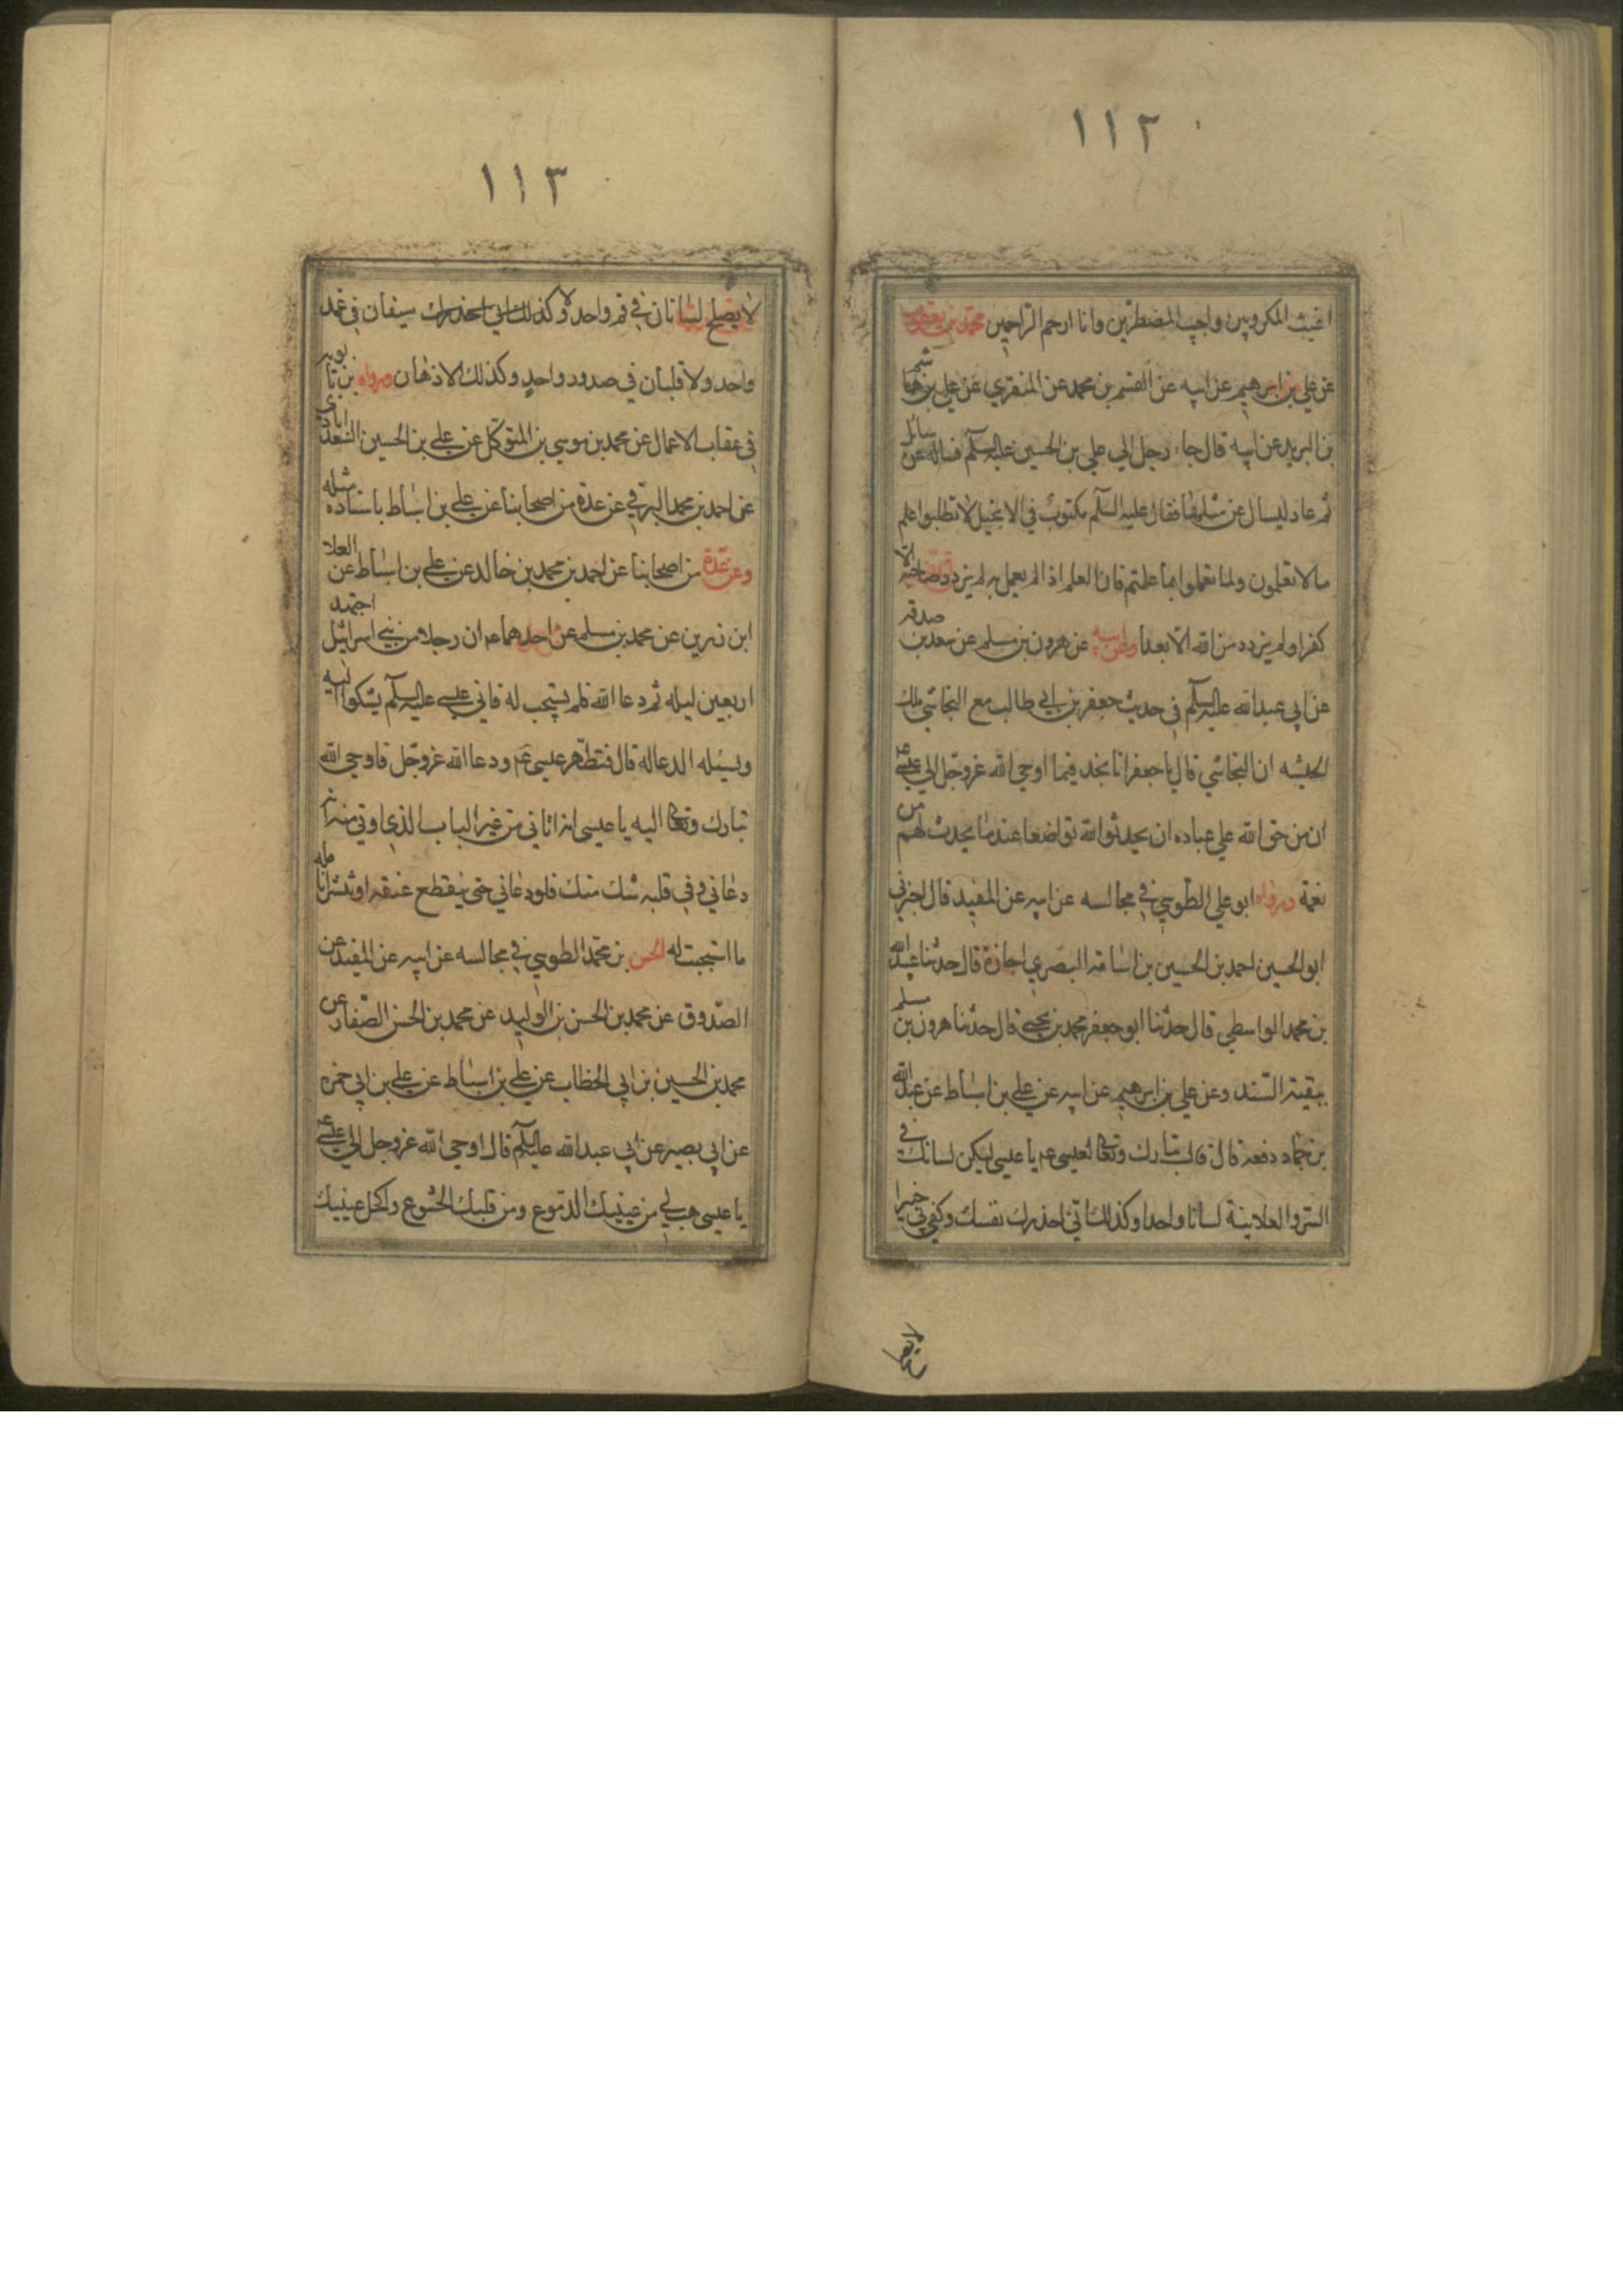 ١١٢
اغيث المكروبين واجيب المضطرين وانا ارحم الراحمين محمد بن يعقوب
عن علي بن ابرهيم عن ابيه عن القسم بن محمد عن المنقري عن علي بن هاشم
بن البريد عن ابيه قال جاء رجل الي علي بن الحسين عليه السلم فساله عن مسائل
ثم عاد ليسال عن مثلها فقال عليه السلم مكتوب في الانجيل لا تطلبوا علم
ما لا تعلمون ولما تعملوا بما علمتم فان العلم اذا لم يعمل به لم يزدد صاحبه الا
كفرا ولم يزدد من الله الا بعدا وعن ابيه عن هرون بن مسلم عن سعد بن صدقه
عن ابي عبد الله عليه السلم في حديث جعفر بن ابي طالب مع النجاشي ملك
الحبشه ان النجاشي قال يا جعفر انا نجد فيما اوحي الله عزوجل الي عيسي ع
ان من حق الله علي عباده ان يحدثوا لله تواضعا عندما يحدث لهم من
نعمة ورواه ابو علي الطوسي في مجالسه عن ابيه عن المفيد قال اخبرني
ابو الحسين احمد بن الحسين بن اسامة البصري اجازة قال حدثنا عبيد الله
بن محمد الواسطي قال حدثنا ابو جعفر محمد بن يحيي قال حدثنا هرون بن مسلم
ببقية السند وعن علي بن ابرهيم عن ابيه عن علي بن اسباط عن عبد الله
بن حماد دفعه قال قال تبارك وتعالى لعيسى ع يا عيسى ليكن لسانك في
السر والعلانية لسانا واحدا وكذلك اني احذرك نفسك وكفي بي خبيرا
لا يصلح
١١٣
لا يصلح لسانان في فم واحد ولا سيفان في غمد
واحد ولا قلبان في صدور واحد وكذلك الاذهان ورواه بن بابويه
في عقاب الاعمال عن محمد بن موسي بن المتوكل عن علي بن الحسين السعدابادي
عن احمد بن محمد البرقي عن عدة من اصحابنا عن علي بن اسباط باسناده مثله
وعن عدة من اصحابنا عن احمد بن محمد بن خالد عن علي بن اسباط عن العلا
ابن زرين عن محمد بن مسلم عن احدهما ع ان رجلا من بني اسرائيل اجتهد
اربعين ليله ثم دعا الله فلم يستجب له فاتي عيسي عليه السلم يشكوا اليه
ويسئله الدعا له قال فتطهر عيسى ع ودعا الله عزوجل فاوحي الله
تبارك وتعالى اليه يا عيسى انه اتاني من غير الباب الذي اوتي منه انه
دعاني وفي قلبه شك منك فلو دعاني حتى ينقطع عنقه او تنتثر انامله
ما استجبت له الحسن بن محمد الطوسي في مجالسه عن ابيه عن المفيد عن
الصدوق عن محمد بن الحسن بن الوليد عن محمد بن الحسن الصفار عن
محمد بن الحسين بن ابي الخطاب عن علي بن اسباط عن علي بن ابي حمزه
عن ابي بصير عن ابي عبد الله عليه السلم قال اوحي الله عزوجل الي عيسي ع
يا عيسى هب لي من عينيك الدموع ومن قلبك الخشوع واكحل عينيك